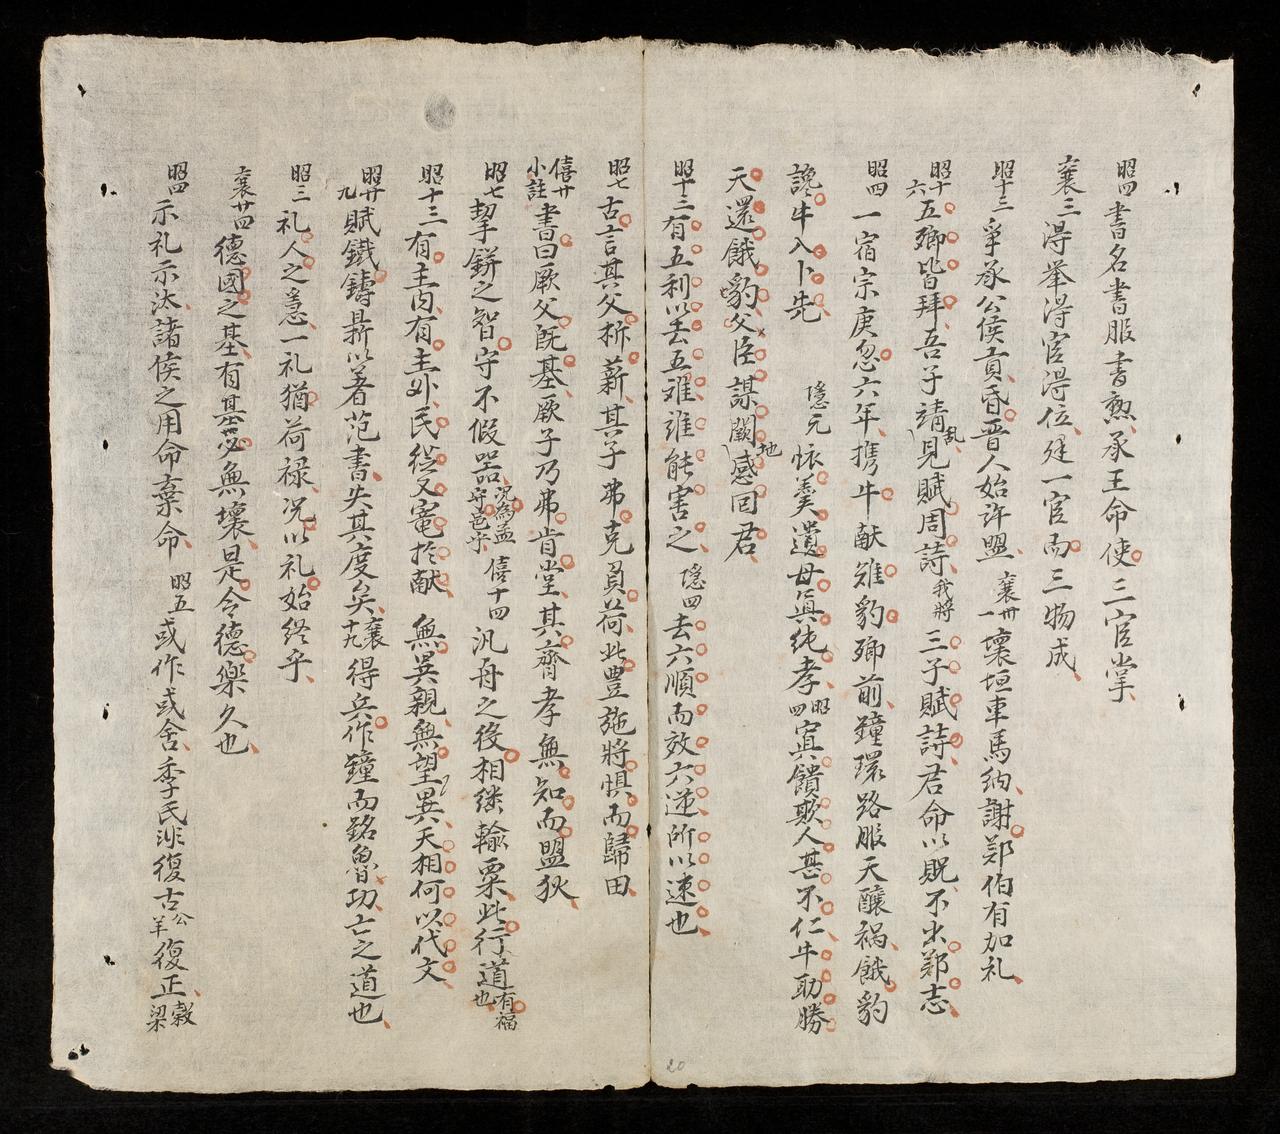 昭四書名書服書勲承王命使三官掌
襄三得挙得官得位建一官而三物成
昭十三爭承公侯貢昏晋人始許盟 襄卅一壞垣車馬納謝鄭伯有加礼
昭十六五卿皆拜吾子靖乱見賦周詩我將三子賦詩君命以貺不出鄭志
昭四一宿宗庚忽六年携牛献雉豹卿前鐘環路服天釀禍餓豹
讒牛入卜先 隠元 懐羹遺母寘純孝昭四寘饋欺人甚不仁牛助勝
天還餓豹父臣謀闕地感回君
昭十三有五利以去五难誰能害之 隠四去六順而效六逆所以速也
昭七古言其父析薪其子弗克負荷此豊施將惧而歸田
僖廿小註書曰厥父既基厥子乃弗肯堂其齊孝無知而盟狄
昭七挈缾之智守不假器况為孟守邑乎 僖十四汎舟之後相继輸粟此行道有福也
昭十三有主内有主外民從又寵於献 無異親無望異天相何以代文
昭廿九賦鐵鑄鼎以著范書失其度矣襄十九得兵作鐘而銘魯功亡之道也
昭三礼人之急一礼猶荷禄况以礼始终乎
襄廿四德國之基有基必無壞是令德樂久也
昭四示礼示汰諸侯之用命棄命 昭五或作或舍季氏非復古公羊復正穀梁
20